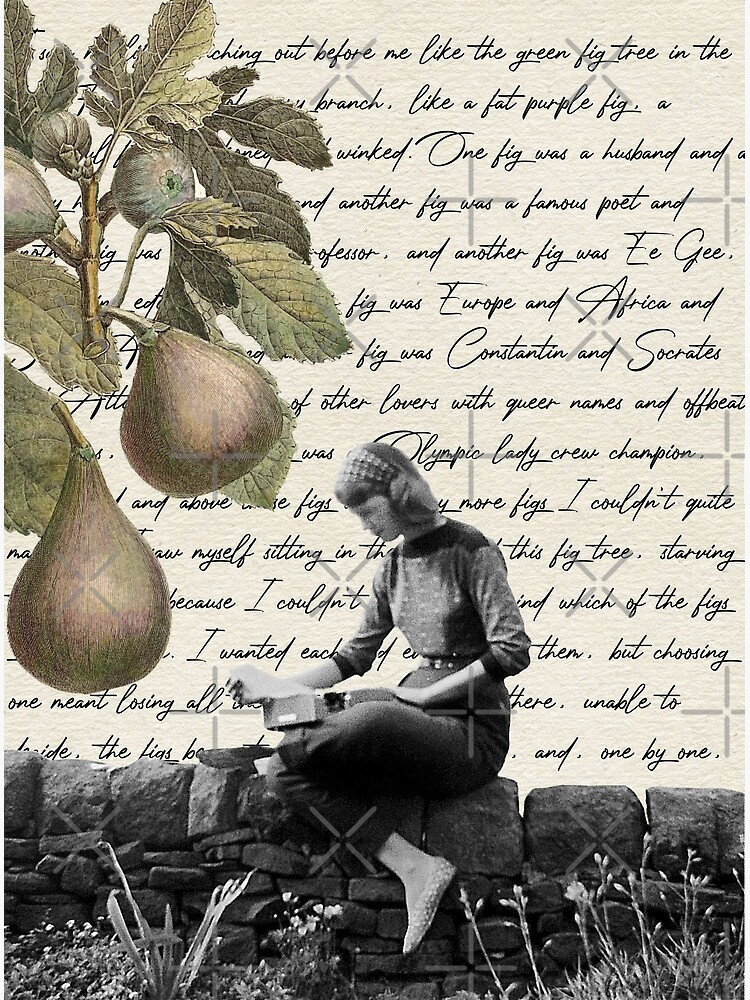 ching out before me like the green fig tree in the
branch, like a fat purple fig, a
winked. One fig was a husband and a
and another fig was a famous poet and
fig was ofessor, and another fig was Ee Gee,
fig was Europe and Africa and
fig was Constantin and Socrates
of other lovers with queer names and offbeat
was Olympic lady crew champion,
and above these figs more figs I couldn't quite
saw myself sitting in this fig tree, starving
because I couldn't which of the figs
I wanted each them, but choosing
one meant losing all unable to
the figs and, one by one,